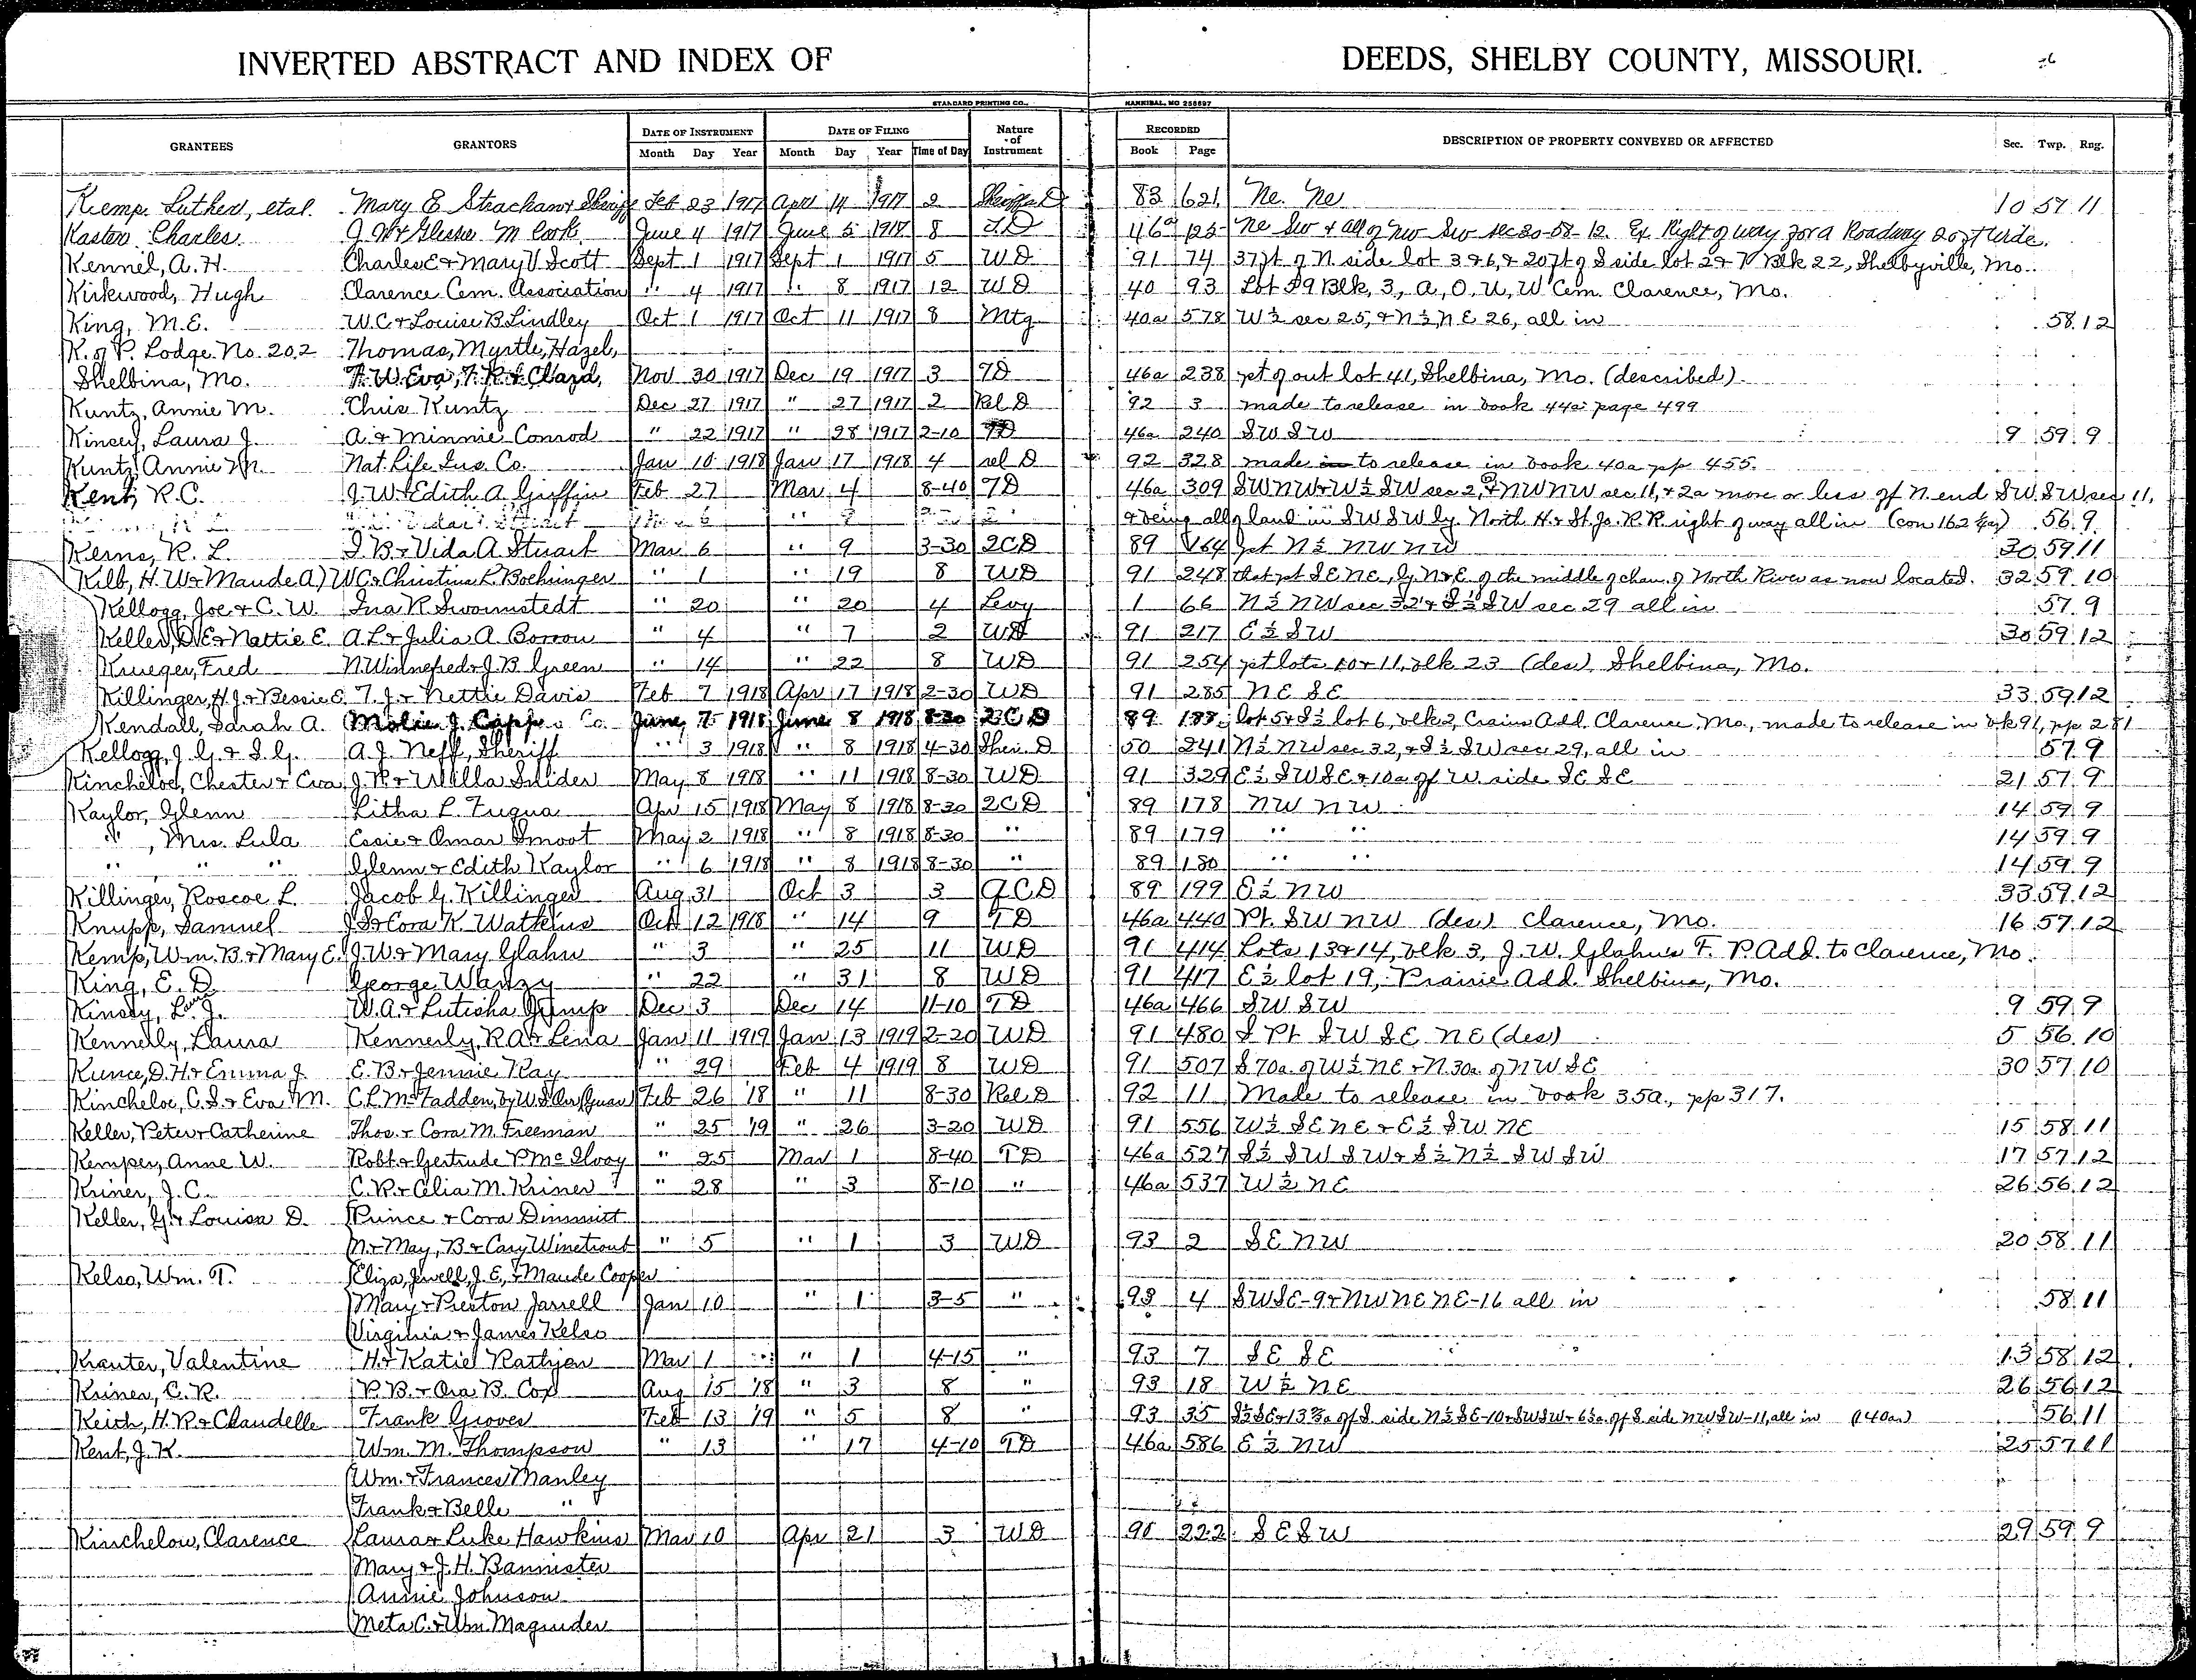 INVERTED ABSTRACT AND INDEX OF DEEDS, SHELBY COUNTY, MISSOURI.
STANDARD PRINTING CO., HANNIBAL, MO 258697
GRANTEES GRANTORS DATE OF INSTRUMENT DATE OF FILING Nature of Instrument RECORDED DESCRIPTION OF PROPERTY CONVEYED OR AFFECTED Sec. Twp. Rng.
Month Day Year Month Day Year Time of Day Book Page
Kemp. Luther, etal. Mary E Strachan & Sheriff Feb 23 1917 Apri 14 1917 2 Sheriffs D 83 621 Ne. Ne 10 57 11
Kaster Charles J W & M Cook June 4 1917 June 5 1917 8 T.D 46a 125 Ne Sw & All of Nw Sw sec 20-58-12 Ex Right of way for a Roadway 20 ft Wide.
Kennel, A. H. Charles E & Mary V Scott Sept 1 1917 Sept 1 1917 5 WD 91 74 37 ft of N. side lot 3 & 6, & 20 ft of S side lot 2 & 7 Blk 22, Shelbyville, Mo.
Kirkwood, Hugh Clarence Cem. Association " 4 1917 " 8 1917 12 WD 40 93 Lot 89 Blk, 3, A, O, U, W Cem. Clarence, Mo.
King, M.E. W.C. & Louise B Lindley Oct 1 1917 Oct 11 1917 8 Mtg 40a 578 W½ sec 25, & N½ NE 26, all in 58 12
K. of P. Lodge No. 202 Thomas, Myrtle, Hazel,
Shelbina, Mo. F. W. Eva, F. R. & Clard, Nov 30 1917 Dec 19 1917 3 TD 46a 238 pt of out lot 41, Shelbina, Mo. (described)
Kuntz, Annie M. Chris Kuntz Dec 27 1917 " 27 1917 2 Rel D 92 3 made to release in book 44a page 499
Kincey, Laura J. A. & Minnie Conrod " 22 1917 " 28 1917 2-10 TD 46a 240 SW SW 9 59 9
Kuntz, Annie M. Nat. Life Ins. Co. Jan 10 1918 Jan 17 1918 4 rel D 92 328 made in to release in book 40a pp 455.
Kent, R.C. J.W & Edith A. Griffin Feb 27 Mar 4 8-40 TD 46a 309 SW NW & W½ SW sec 2, & NW NW sec 11, & 2a more or less of N. end SW. SW sec 11,
" 9 & being all of land in SW SW ly. North H. & St. Jo. R.R right of way all in (con 162 ac) 56 9
Kerns, R. L. I B. & Vida A. Stuart Mar 6 " 9 3-30 2CD 89 164 pt N½ NW NW 30 59 11
Kilb, H. W & Maude A) W.C. & Christina R. Boehringer " 1 " 19 8 WD 91 248 that pt SE NE, ly. N & E of the middle of chan. of North River as now located. 32 59 10
Kellogg, Joe & C. W. Ina R. Swormstedt " 20 " 20 4 Levy 1 66 N½ NW sec 32 & S½ SW sec 29 all in 57 9
Keller, D. E & Nettie E. A.L & Julia A. Borron " 4 " 7 2 WD 91 217 E½ SW 30 59 12
Krueger, Fred N. Winnefred & J B Green " 14 " 22 8 WD 91 254 pt lots 10 & 11, blk 23 (des), Shelbina, Mo.
Killinger, H.J. & Bessie E. T.J. & Nettie Davis Feb 7 1918 Apr 17 1918 2-30 WD 91 285 NE SE 33 59 12
Kendall, Sarah A. Molie J. Capp & Co. June 7 1918 June 8 1918 8-30 2CD 89 188 lot 5 & S½ lot 6, blk 2, Crains Add. Clarence, Mo., made to release in bk 91, pp 281
Kellogg, J. G. & S. G. A. J. Neff, Sheriff " 3 1918 " 8 1918 4-30 Sher. D 50 241 N½ NW sec 32, & S½ SW sec 29, all in 57 9
Kincheloe, Chester & Eva J. R. & Willa Snider May 8 1918 " 11 1918 8-30 WD 91 329 E½ SW SE & 10a of W. side SE SE 21 57 9
Kaylor, Glenn Litha L. Fuqua Apr 15 1918 May 8 1918 8-30 2CD 89 178 NW NW 14 59 9
" , Mrs. Lula Essie & Omar Smoot May 2 1918 " 8 1918 8-30 " 89 179 " " 14 59 9
" " " Glenn & Edith Kaylor " 6 1918 " 8 1918 8-30 " 89 180 " " 14 59 9
Killinger, Roscoe L. Jacob G. Killinger Aug 31 Oct 3 3 QCD 89 199 E½ NW 33 59 12
Knupp, Samuel J S & Cora K. Watkins Oct 12 1918 " 14 9 TD 46a 440 Pt. SW NW (des) Clarence, Mo. 16 57 12
Kemp, Wm. B. & Mary E. J.W. & Mary Glahn " 3 " 25 11 WD 91 414 Lots 13 & 14, blk 3, J. W. Glahns F. P. Add. to Clarence, Mo.
King, E. D. George Wanzy " 22 " 31 8 WD 91 417 E½ lot 19, Prairie Add. Shelbina, Mo.
Kinsey, Laura J. W.A. & Lutisha Gump Dec 3 Dec 14 11-10 TD 46a 466 SW SW 9 59 9
Kennerly, Laura Kennerly, R A & Lena Jan 11 1919 Jan 13 1919 2-20 WD 91 480 S Pt SW SE NE (des) 5 56 10
Kunce, D. H. & Emma J. E. B. & Jennie Ray " 29 Feb 4 1919 8 WD 91 507 S 70a. of W½ NE & N. 30a. of NW SE 30 57 10
Kincheloe, C. S. & Eva M. C.L. McFadden, by W S (Guar) Feb 26 '18 " 11 8-30 Rel D 92 11 Made to release in book 35a, pp 317.
Keller, Peter & Catherine Thos. & Cora M. Freeman " 25 '19 " 26 3-20 WD 91 556 W½ SE NE & E½ SW NE 15 58 11
Kemper, Anne W. Robt & Gertrude P. McIlvoy " 25 Mar 1 8-40 TD 46a 527 S½ SW SW & S½ N½ SW SW 17 57 12
Kriner, J. C. C. R. & Celia M. Kriner " 28 " 3 8-10 " 46a 537 W½ NE 26 56 12
Keller, G. & Louisa D. Prince & Cora Dimmitt
N. & May, B. & Cary Winetrout " 5 " 1 3 WD 93 2 SE NW 20 58 11
Kelso, Wm. T. Eliza, Jewell, J. E., & Maude Cooper
Mary & Preston Jarrell Jan 10 " 1 3-5 " 93 4 SW SE-9 & NW NE NE-16 all in 58 11
Virginia & James Kelso
Krauter, Valentine H. & Katie Rathjen Mar 1 " 1 4-15 " 93 7 SE SE 13 58 12
Kriner, C. R. P. B. & Ora B. Cox Aug 15 '18 " 3 8 " 93 18 W½ NE 26 56 12
Keith, H. R & Claudelle Frank Groves Feb 13 '19 " 5 8 " 93 35 S½ SE & 13 a of S. side N½ SE-10 & SW SW & 6 a. of S. side NW SW-11, all in (140a) 56 11
Kent, J. K. Wm. M. Thompson " 13 " 17 4-10 TD 46a 586 E½ NW 25 57 11
Wm. & Frances Manley
Frank & Belle "
Kinchelow, Clarence Laura & Luke Hawkins Mar 10 Apr 21 3 WD 90 222 SE SW 29 59 9
Mary & J. H. Bannister
Annie Johnson
Meta C. & Wm. Magruder